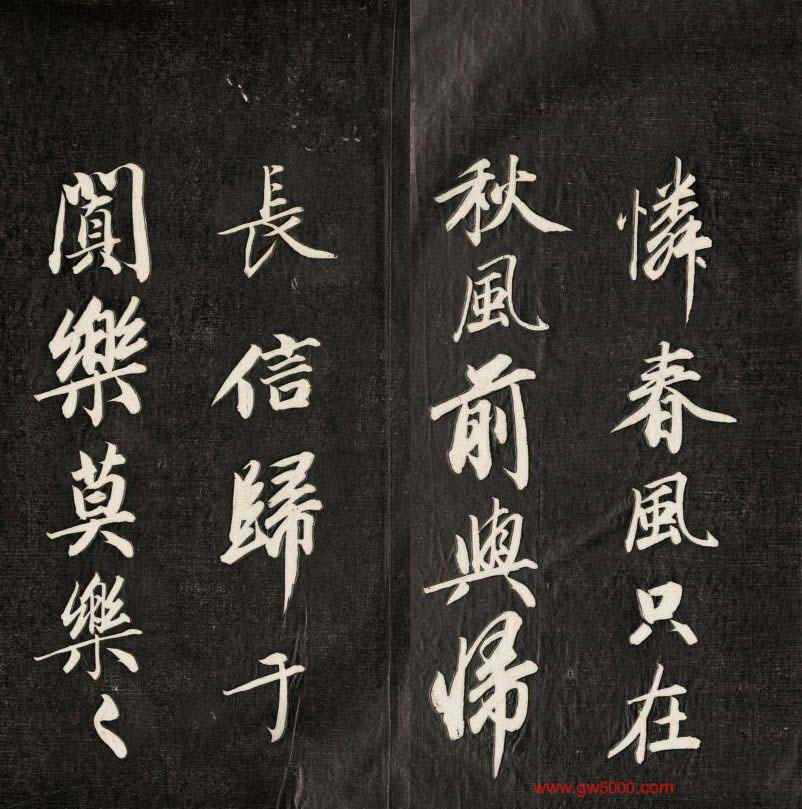 憐春風只在
秋風前與帰
長信歸于
闐樂莫樂々
www.gw5000.com